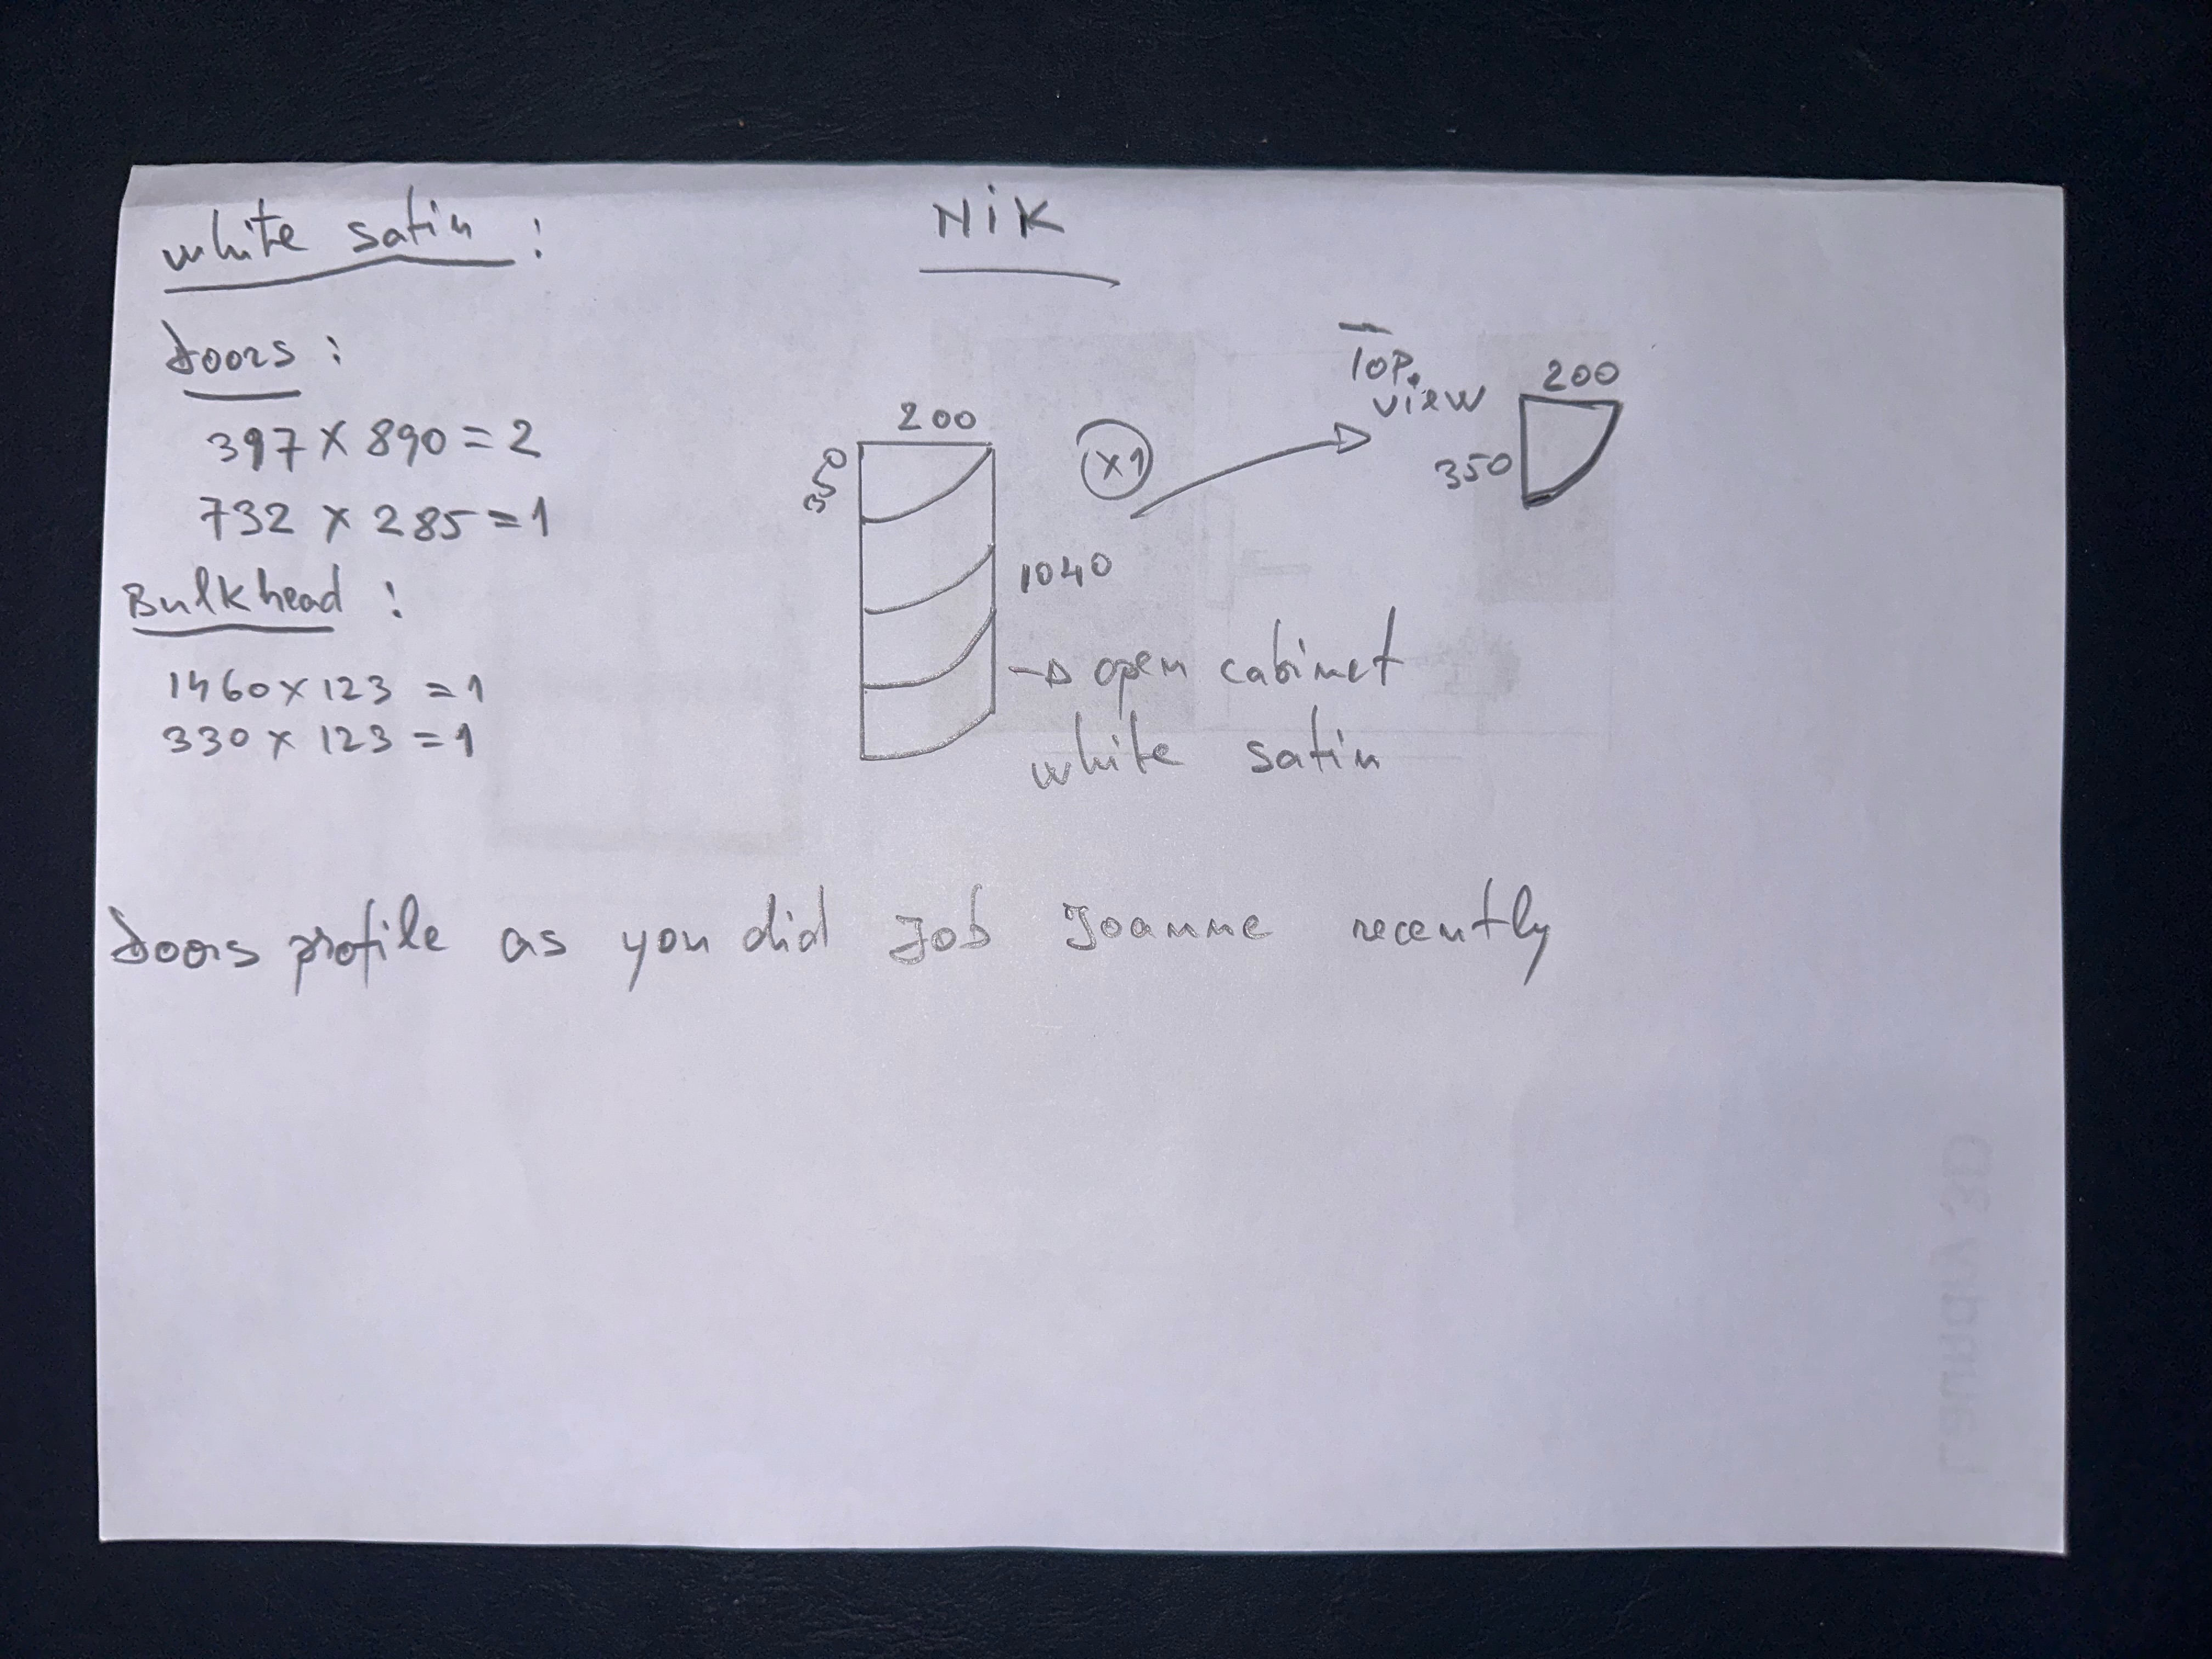 white satin :
NiK
Doors :
397 x 890 = 2
732 x 285 = 1
Bulkhead :
1460 x 123 = 1
330 x 123 = 1
200
350
x1
1040
→ open cabinet
white satin
Top
view
200
350
Doors profile as you did Job Joanne recently
Laundry 3D